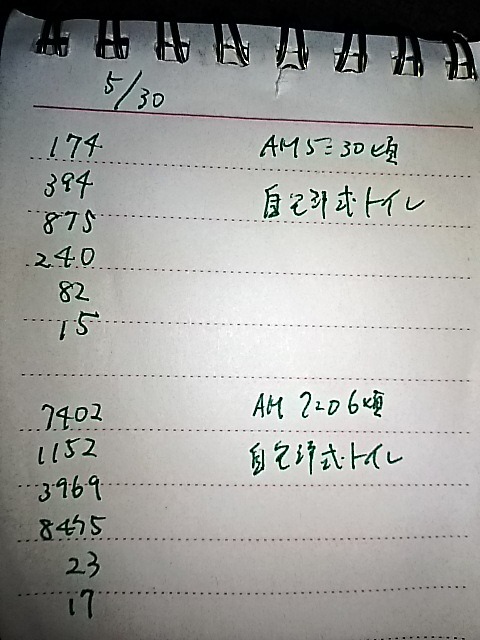 5/30
174 AM5:30頃
394 自宅洋式トイレ
875
240
82
15
7402 AM 7:06頃
1152 自宅洋式トイレ
3969
8475
23
17